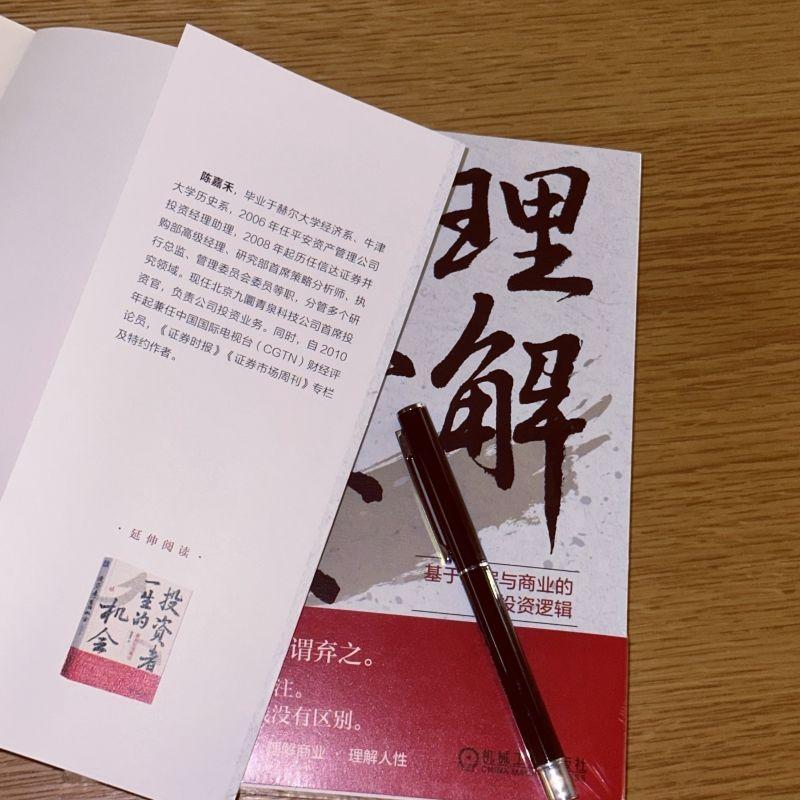 陈嘉禾，毕业于赫尔大学经济系、牛津
大学历史系，2006年任平安资产管理公司
投资经理助理，2008年起历任信达证券并
购部高级经理、研究部首席策略分析师、执
行总监、管理委员会委员等职，分管多个研
究领域。现任北京九圜青泉科技公司首席投
资官，负责公司投资业务。同时，自2010
年起兼任中国国际电视台（CGTN）财经评
论员，《证券时报》《证券市场周刊》专栏
及特约作者。
·延伸阅读·
投资者
一生的
机会
理
解
基于
与商业的
投资逻辑
谓弃之。
注。
没有区别。
理解商业 · 理解人性
机械工
版社
CHINA MA